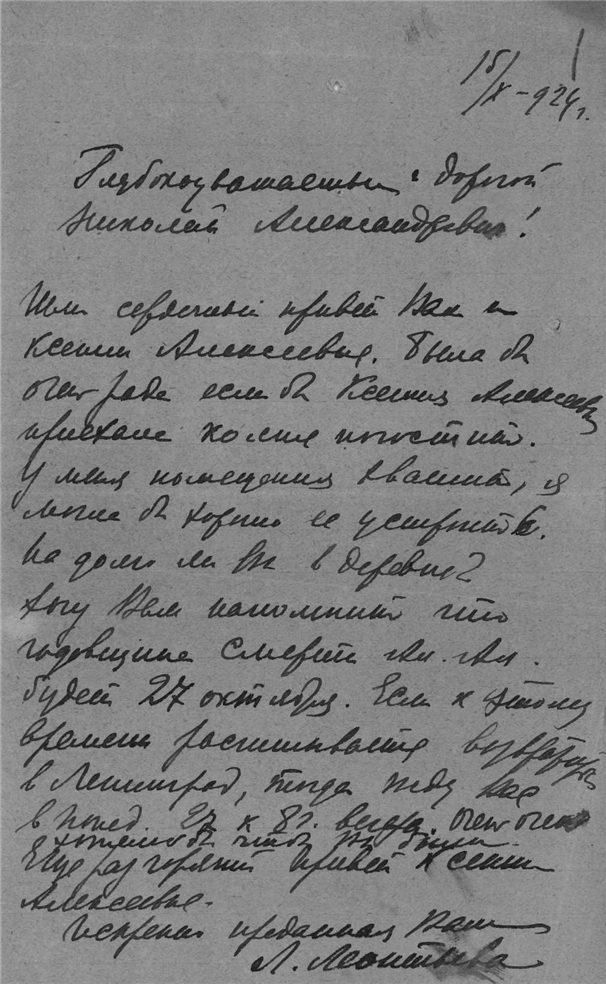 15/X – 924 г.
Глубокоуважаемый и дорогой
Николай Александрович!
Шлю сердечный привет Вам и
Ксении Алексеевне. Была бы
очень рада если бы Ксения Алексеевна
приехала ко мне погостить.
У меня помещения хватит, я
могла бы хорошо ее устроить.
На долго ли Вы в деревне?
Хочу Вам напомнить что
годовщина смерти Ал. Ал.
будет 27 октября. Если к этому
времени рассчитываете возвратиться
в Ленинград, тогда жду Вас
в понед. 27 к 8 ч. вечера. Очень очень
хотелось бы чтоб Вы были.
Еще раз горячий привет Ксении
Алексеевне.
Искренно преданная Вам
Л. Леонтьева